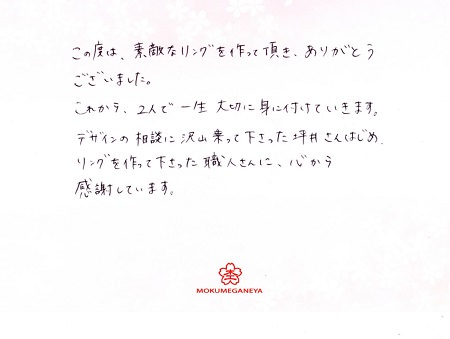 この度は、素敵なリングを作って頂き、ありがとう
ございました。
これから、2人で一生大切に身に付けていきます。
デザインの相談に沢山乗って下さった坪井さんはじめ、
リングを作って下さった職人さんに、心から
感謝しています。
MOKUMEGANEYA